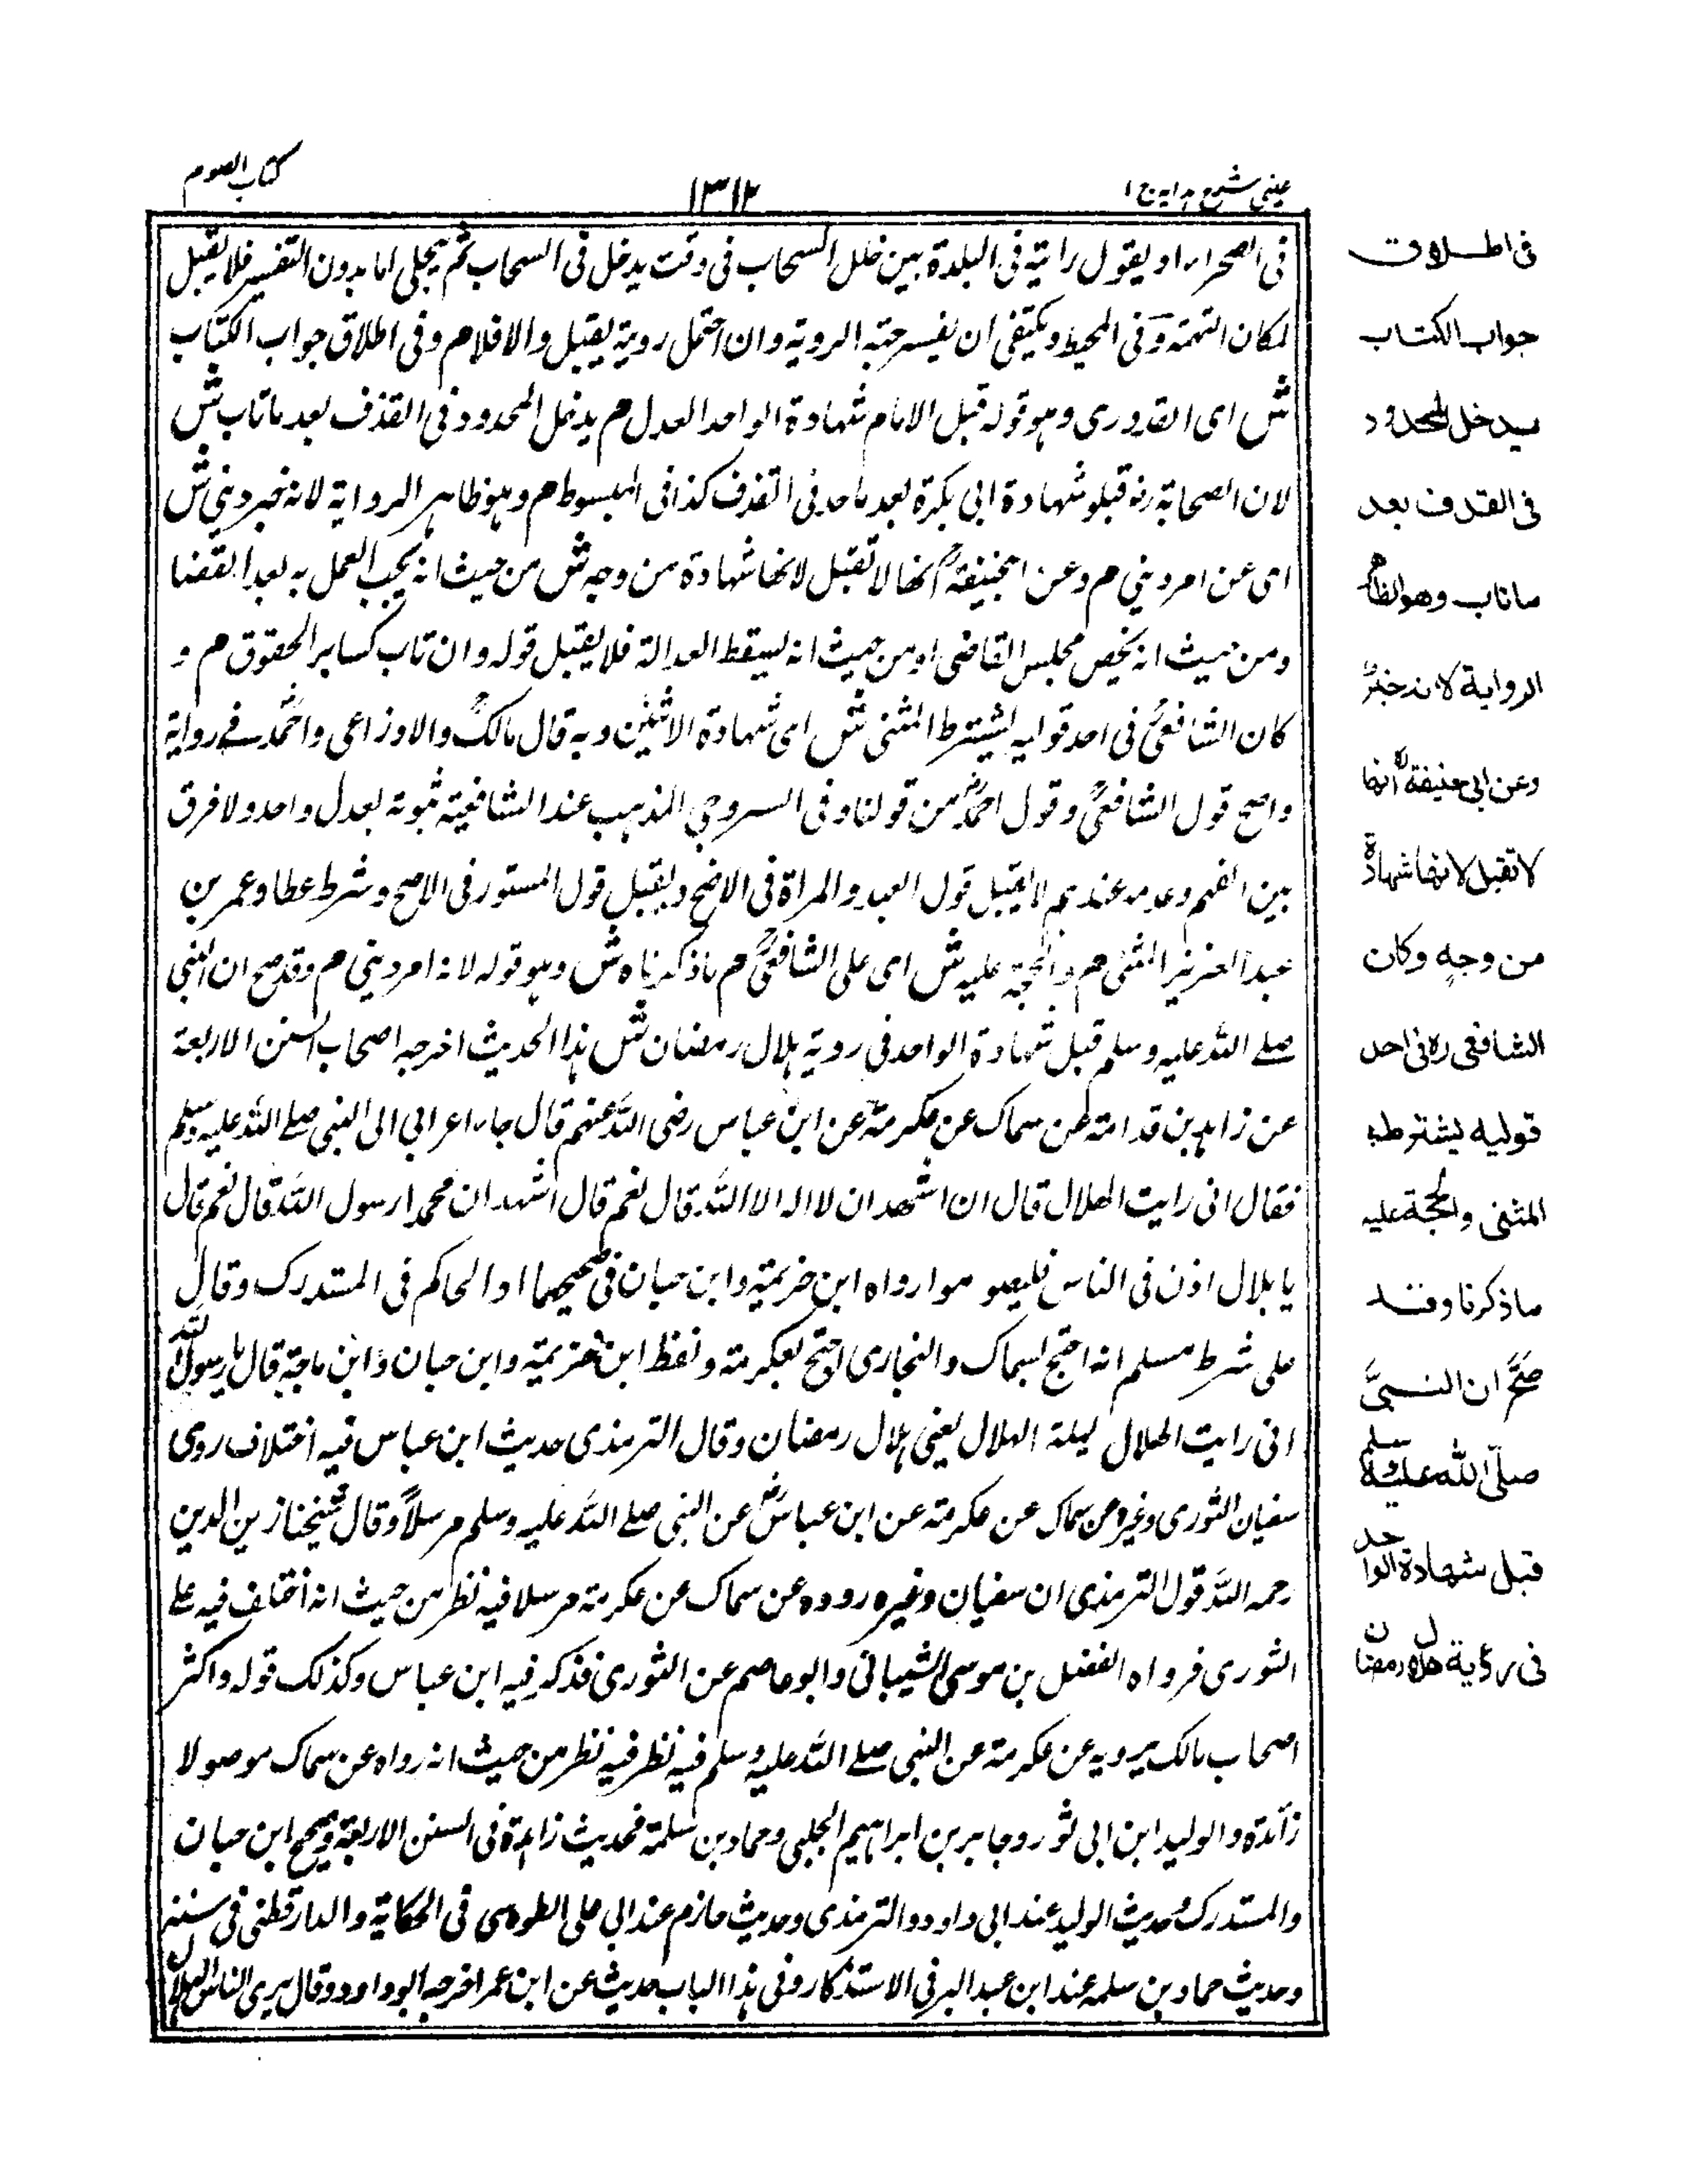 عینی شرح ہدایہ ج ۱
۱۳۱۲
کتاب الصوم
فی الصحراء او یقول رایته فی البلدة بین خلل السحاب فی وقت یدخل فی السحاب ثم ینجلی اما بدون التفسیر فلا یقبل
لمکان التهمة وفی المحیط ویکتفی ان یفسر جهة الرویة وان احتمل رویة یقبل والا فلا م وفی اطلاق جواب الکتاب
ش ای القدوری وہو قوله قبل الامام شهادة الواحد العدل م یدخل المحدود فی القذف بعد ما تاب ش
لان الصحابة رضہ قبلو شهادة ابی بکرة بعد ما حد فی القذف کذا فی المبسوط م وہو ظاہر الروایة لانه خبر دینی ش
ای عن امر دینی م وعن ابیحنیفةؒ انها لا تقبل لانها شهادة من وجه ش من حیث انه یجب العمل به بعد القضا
ومن حیث انه یخص مجلس القاضی او من حیث انه یسقط العدالة فلا یقبل قوله وان تاب کسایر الحقوق م و
کان الشافعیؒ فی احد قولیه یشترط المثنی ش ای شهادة الاثنین وبه قال مالکؒ والاوزاعی واحمدؒ فے روایة
واصح قول الشافعیؒ وقول احمدؒ من قولنا وفی السروجی المذہب عند الشافعیة ثبوته بعدل واحد ولا فرق
بین الغیم وعدمه عندہم لا یقبل قول العبد والمراة فی الاضح ویقبل قول المستور فی الاصح وشرط عطا وعمر بن
عبد العزیز المثنی م والحجة علیه ش ای علی الشافعیؒ م ما ذکرناه ش وہو قوله لانه امر دینی م وقد صح ان النبی
صلے اللّٰه علیه وسلم قبل شهادة الواحد فی رویة ہلال رمضان ش ہذا الحدیث اخرجه اصحاب السنن الاربعة
عن زاید بن قدامة عن سماک عن عکرمة عن ابن عباس رضی اللّٰه عنهم قال جاء اعرابی الی النبی صلے اللّٰه علیه وسلم
فقال انی رایت الهلال قال ان اشهد ان لا اله الا اللّٰه قال نعم قال اشهد ان محمدا رسول اللّٰه قال نعم قال
یا بلال اذن فی الناس فلیصو موا رواه ابن خزیمة وابن حبان فی صحیحهما او الحاکم فی المستدرک وقال
علی شرط مسلم انه احتج بسماک والبخاری احتج بعکرمة ولفظ ابن خزیمة وابن حبان وابن ماجة قال یا رسول اللّٰه
انی رایت الهلال لیلة الہلال یعنی ہلال رمضان وقال الترمذی حدیث ابن عباس فیه اختلاف روی
سفیان الثوری وغیره عن سماک عن عکرمة عن ابن عباسؓ عن النبی صلے اللّٰه علیه وسلم مرسلاً وقال شیخنا زین الدین
رحمه اللّٰه قول الترمذی ان سفیان وغیره رووه عن سماک عن عکرمة مرسلا فیه نظر من حیث انه اختلف فیه علے
الثوری فرواه الفضل بن موسی الشیبانی وابو عاصم عن الثوری فذکر فیه ابن عباس وکذلک قوله واکثر
اصحاب مالک یرویه عن عکرمة عن النبی صلے اللّٰه علیه وسلم فیه نظر فیه نظر من حیث انه رواه عن سماک موصولا
زآئدة والولید ابن ابی ثور وجابر بن ابراہیم البجلی وحماد بن سلمة فحدیث زائدة فی السنن الاربعة وصحیح ابن حبان
والمستدرک وحدیث الولید عند ابی داود والترمذی وحدیث حازم عند ابی علی الطوسی فی الحکایة والدارقطنی فی سننه
وحدیث حماد بن سلمه عند ابن عبد البر فی الاستذکار وفی ہذا الباب حدیث عن ابن عمر اخرجه ابو داود وقال یری الناس الہلال
فی اطــلاق
جواب الکتاب
یدخل المحدود
فی القذف بعد
ما تاب وهو الظاهر
الروایة لانه خبر
وعن ابی حنیفةؒ انها
لا تقبل لانها شهادة
من وجهٍ وکان
الشافعی رہ فی احد
قولیه یشترط
المثنی والحجة علیه
ما ذکرنا وقد
صَحَّ ان النبیَّ
صلّی اللّٰه علیه وسلم
قبل شهادة الواحد
فی رؤیة هلال رمضان